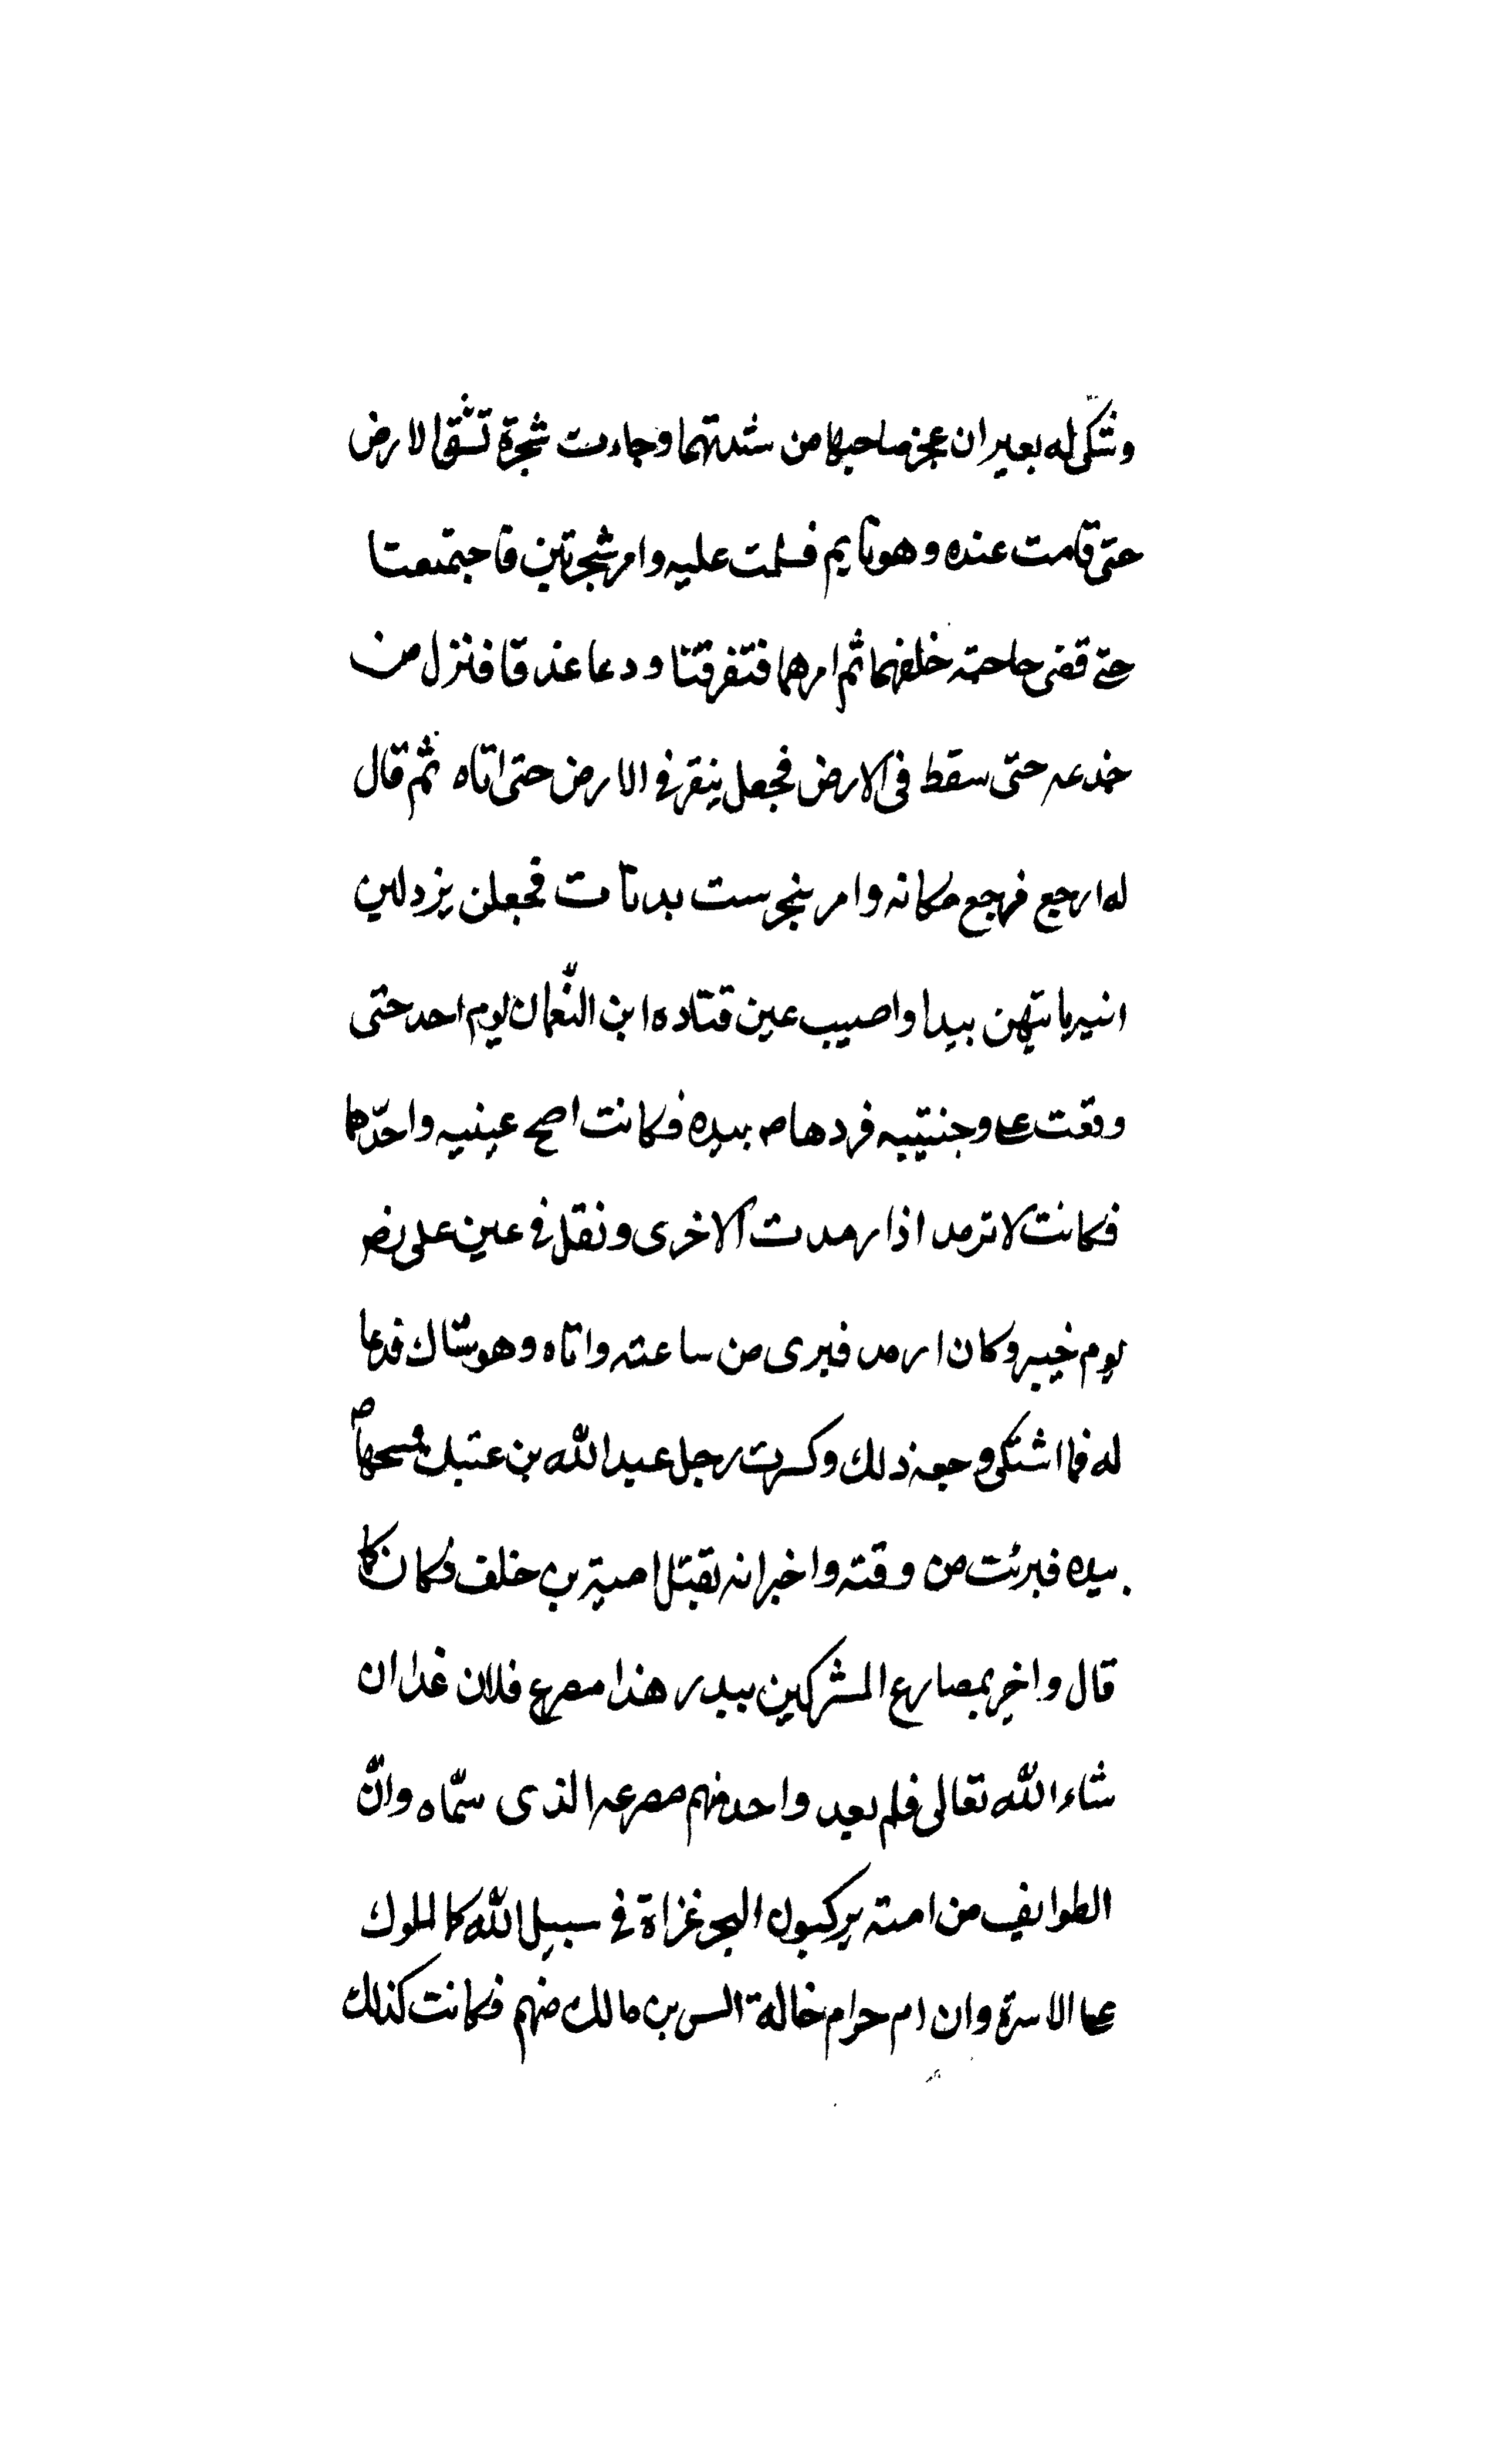 وشكى له بعيران عجز صاحبها من شدتهما وجاءت شجرة تشق الارض
حتى قامت عنده وهو نايم فسلمت عليه وامر شجرتين فاجتمعتا
حتى قضى حاجته خلفهما ثم امرهما فتفرقتا ودعا عذقا فنزل من
جذعه حتى سقط فى الارض فجعل ينقر فى الارض حتى اتاه ثم قال
له ارجع فرجع مكانه وامر بنحر ست بدنات فجعلن يزدلين
يبدا واصيب عين قتاده ابن النعمان يوم احد حتى
وقعت على وجنتيه فردها ص بيده فكانت اصح عينيه واحدهما
فكانت لا ترمد اذا رمدت الاخرى وتفل فى عين على رض
يوم خيبر وكان ارمد فبرى من ساعته واتاه وهو شاك فدعا
له فما اشتكى وجعه ذلك وكسرت رجل عبد الله بن عتيك فمسحها ص
بيده فبرئت من وقته واخبر انه يقتل امية بن خلف فكان كما
قال واخبر بمصارع المشركين ببدر هذا مصرع فلان غدا ان
شاء الله تعالى فلم يعد واحد منهم مصرعه الذى سماه وان
الطوايف من امته يركبون البحر غزاة فى سبيل الله كالملوك
على الاسرة وان ام حرام خالة انس بن مالك منهم فكانت كذلك